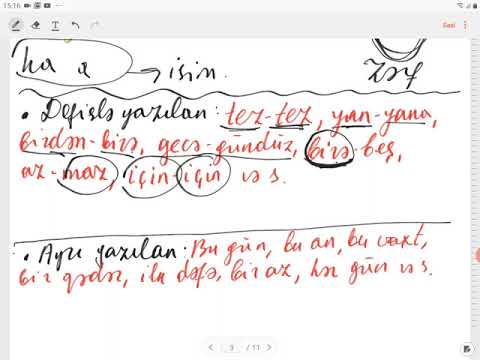 15:16
84%
Sası
ha
a → için.
Zərf
• Defislə yazılan: tez-tez, yan-yana,
birdən-birə, gecə-gündüz, birə-beş,
az-maz, için-için və s.
• Ayrı yazılan: Bu gün, bu an, bu vaxt,
bir qədər, ilk dəfə, bir az, hər gün və s.
3 / 11